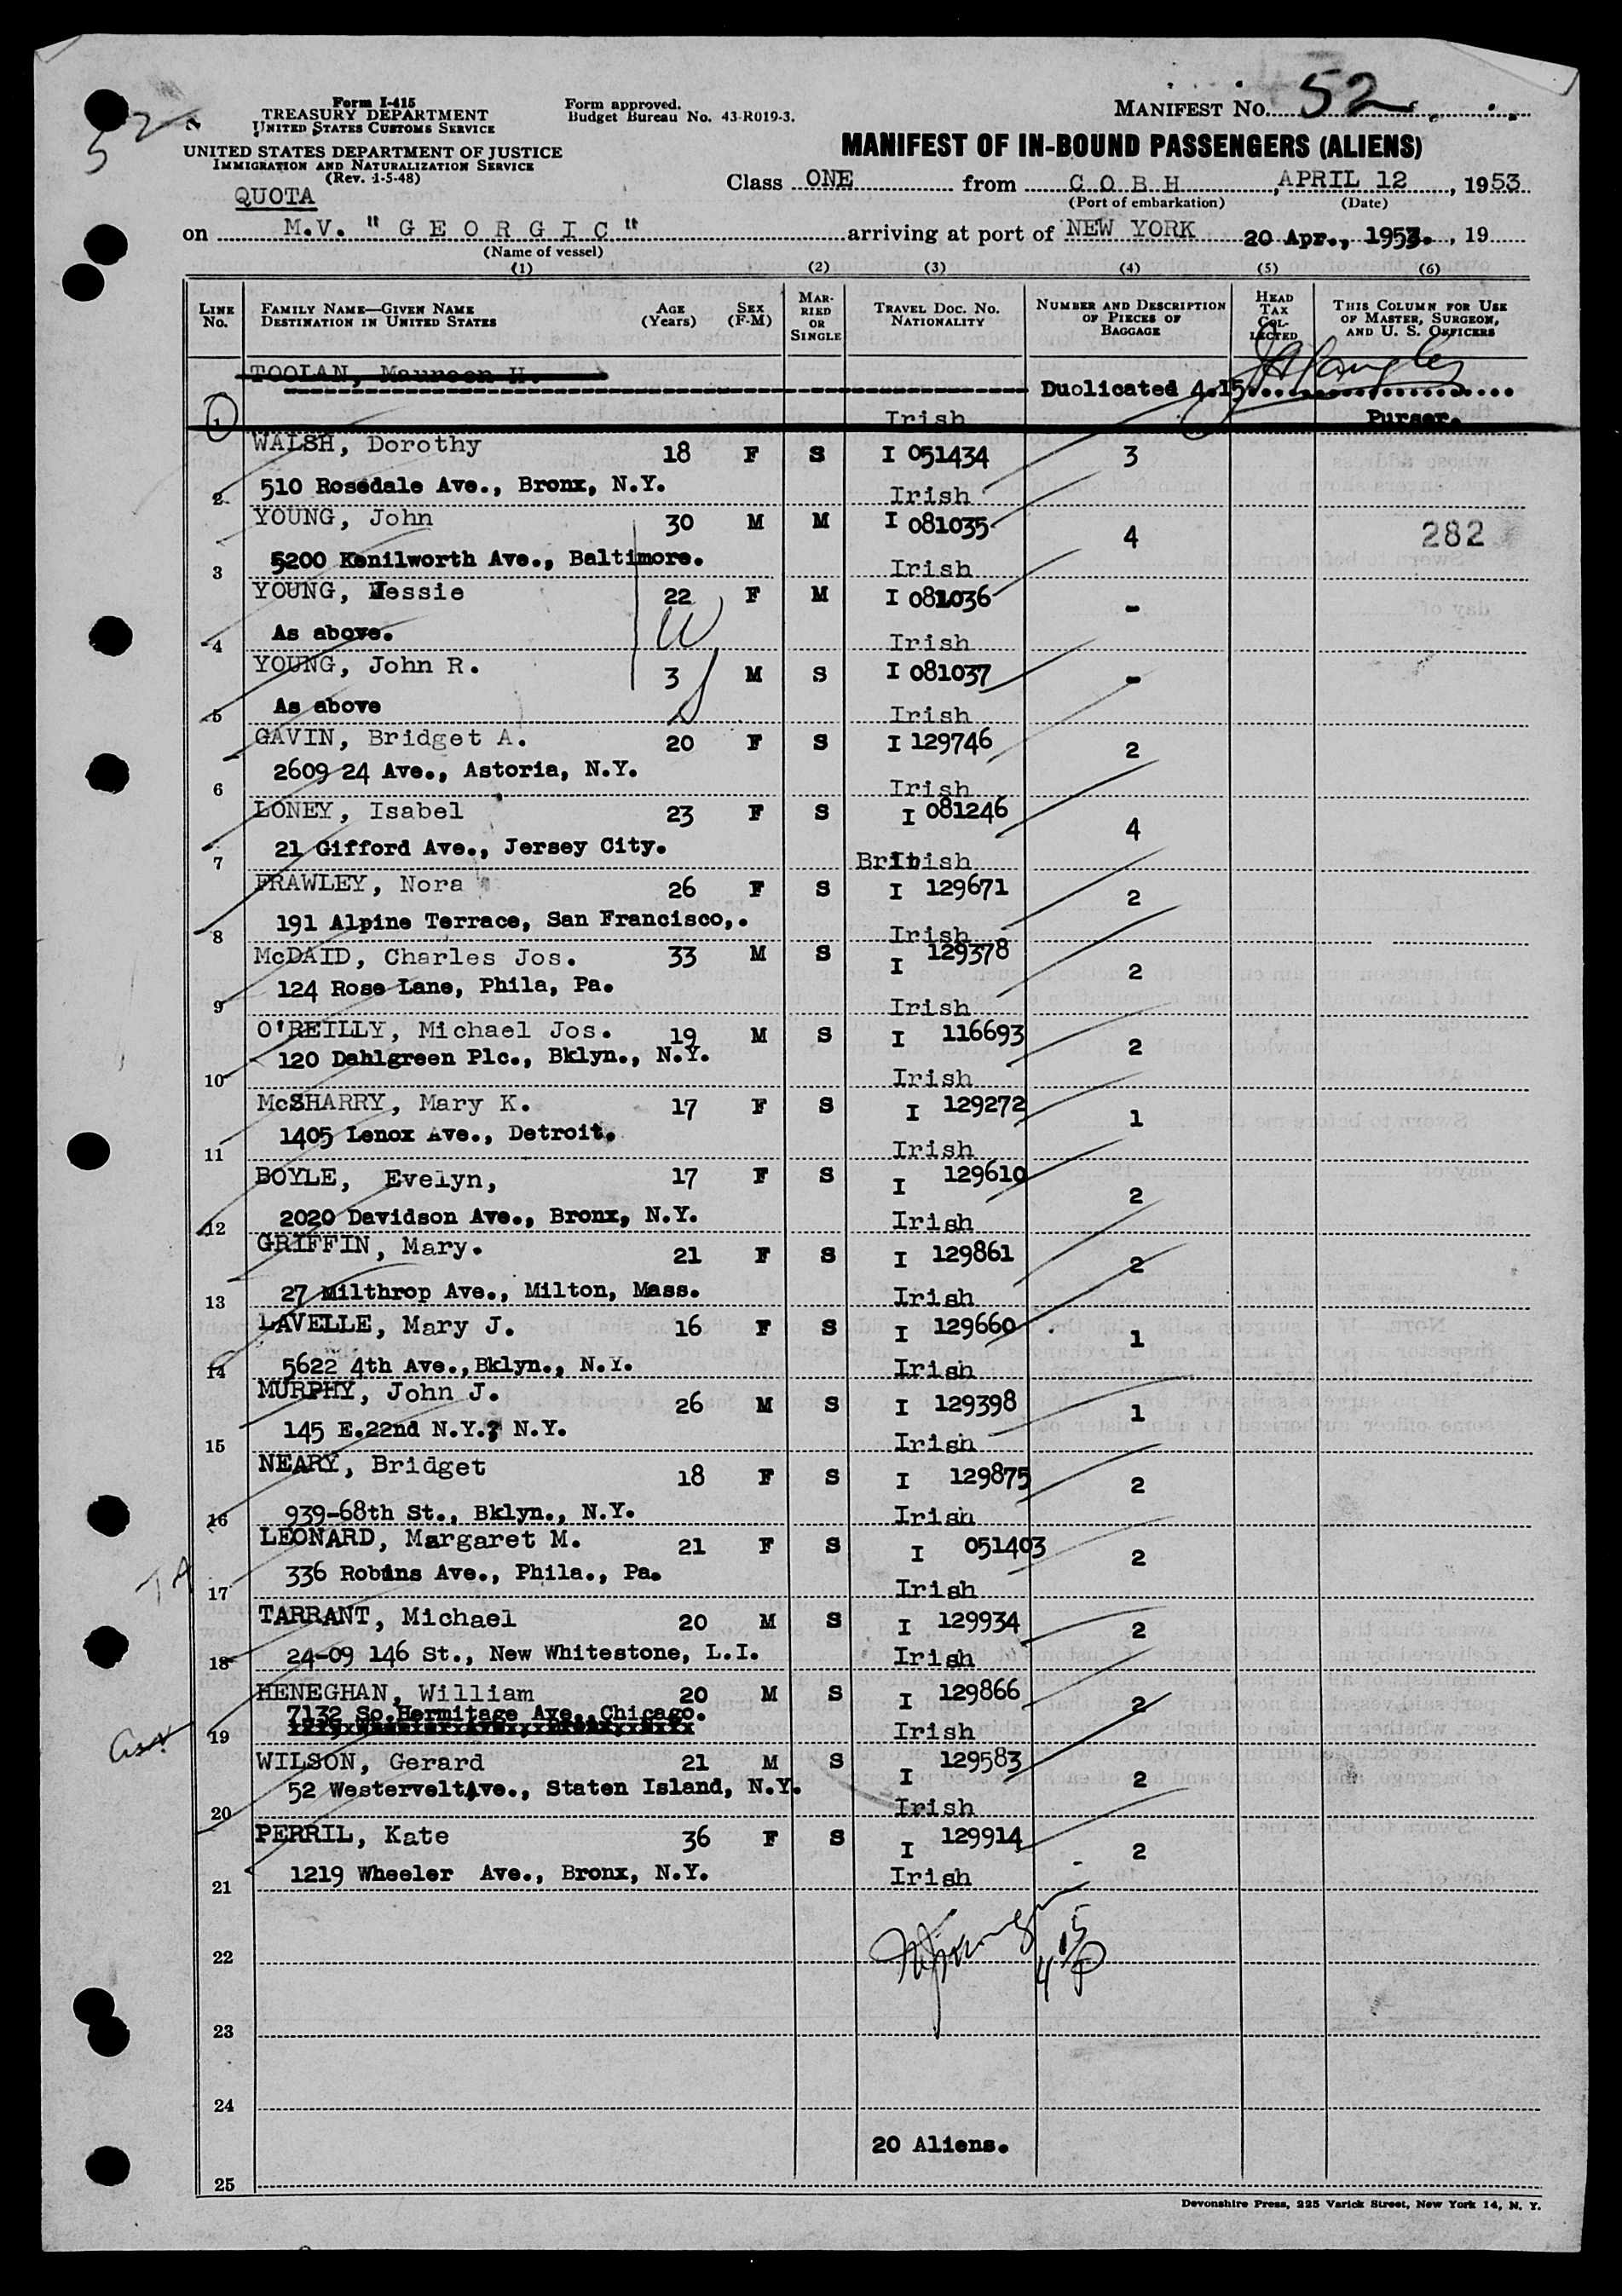 52
Form I-415
TREASURY DEPARTMENT
UNITED STATES CUSTOMS SERVICE
UNITED STATES DEPARTMENT OF JUSTICE
IMMIGRATION AND NATURALIZATION SERVICE
(Rev. 1-5-48)
QUOTA
Form approved.
Budget Bureau No. 43-R019-3.
MANIFEST NO. 52
MANIFEST OF IN-BOUND PASSENGERS (ALIENS)
Class ONE from COBH, APRIL 12, 1953
(Port of embarkation) (Date)
on M.V. "GEORGIC" arriving at port of NEW YORK 20 Apr., 1953., 19
(Name of vessel)
(1) (2) (3) (4) (5) (6)
LINE NO. FAMILY NAME—GIVEN NAME DESTINATION IN UNITED STATES AGE (YEARS) SEX (F-M) MARRIED OR SINGLE TRAVEL DOC. NO. NATIONALITY NUMBER AND DESCRIPTION OF PIECES OF BAGGAGE HEAD TAX COLLECTED THIS COLUMN FOR USE OF MASTER, SURGEON, AND U. S. OFFICERS
TOOLAN, Maureen H.
Duolicated 4.15
1 Irish Purser.
WALSH, Dorothy 18 F S I 051434 3
2 510 Rosedale Ave., Bronx, N.Y. Irish
YOUNG, John 30 M M I 081035 4 282
3 5200 Kenilworth Ave., Baltimore. Irish
YOUNG, Jessie 22 F M I 081036 -
W
4 As above. Irish
YOUNG, John R. 3 M S I 081037 -
5 As above Irish
GAVIN, Bridget A. 20 F S I 129746 2
6 2609 24 Ave., Astoria, N.Y. Irish
LONEY, Isabel 23 F S I 081246 4
7 21 Gifford Ave., Jersey City. British
FRAWLEY, Nora 26 F S I 129671 2
8 191 Alpine Terrace, San Francisco,. Irish
McDAID, Charles Jos. 33 M S I 129378 2
9 124 Rose Lane, Phila, Pa. Irish
O'REILLY, Michael Jos. 19 M S I 116693 2
120 Dahlgreen Plc., Bklyn., N.Y.
10 Irish
McSHARRY, Mary K. 17 F S I 129272 1
1405 Lenox Ave., Detroit.
11 Irish
BOYLE, Evelyn, 17 F S I 129610 2
12 2020 Davidson Ave., Bronx, N.Y. Irish
GRIFFIN, Mary. 21 F S I 129861 2
13 27 Milthrop Ave., Milton, Mass. Irish
LAVELLE, Mary J. 16 F S I 129660 1
14 5622 4th Ave., Bklyn., N.Y. Irish
MURPHY, John J. 26 M S I 129398 1
145 E.22nd N.Y., N.Y.
15 Irish
NEARY, Bridget 18 F S I 129875 2
16 939-68th St., Bklyn., N.Y. Irish
LEONARD, Margaret M. 21 F S I 051403 2
336 Robins Ave., Phila., Pa.
17 Irish
TARRANT, Michael 20 M S I 129934 2
18 24-09 146 St., New Whitestone, L.I. Irish
HENEGHAN, William 20 M S I 129866 2
7132 So.Hermitage Ave., Chicago.
19 Irish
WILSON, Gerard 21 M S I 129583 2
52 WesterveltAve., Staten Island, N.Y.
20 Irish
PERRIL, Kate 36 F S I 129914 2
1219 Wheeler Ave., Bronx, N.Y. Irish
21
22
23
24
20 Aliens.
25
Devonshire Press, 225 Varick Street, New York 14, N. Y.